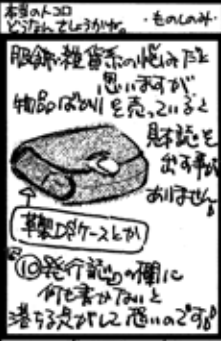 本当のトコロ
どうなんでしょうかね。
・ものしのみ・
服飾・雑貨系の悩みだと
思いますが
物品ばかりを売っていると
財誌を
出す事が
ありません。
革製DSケースとか
⑩発行誌の欄に
何も書かないと
落ちる気がして恐いのです。